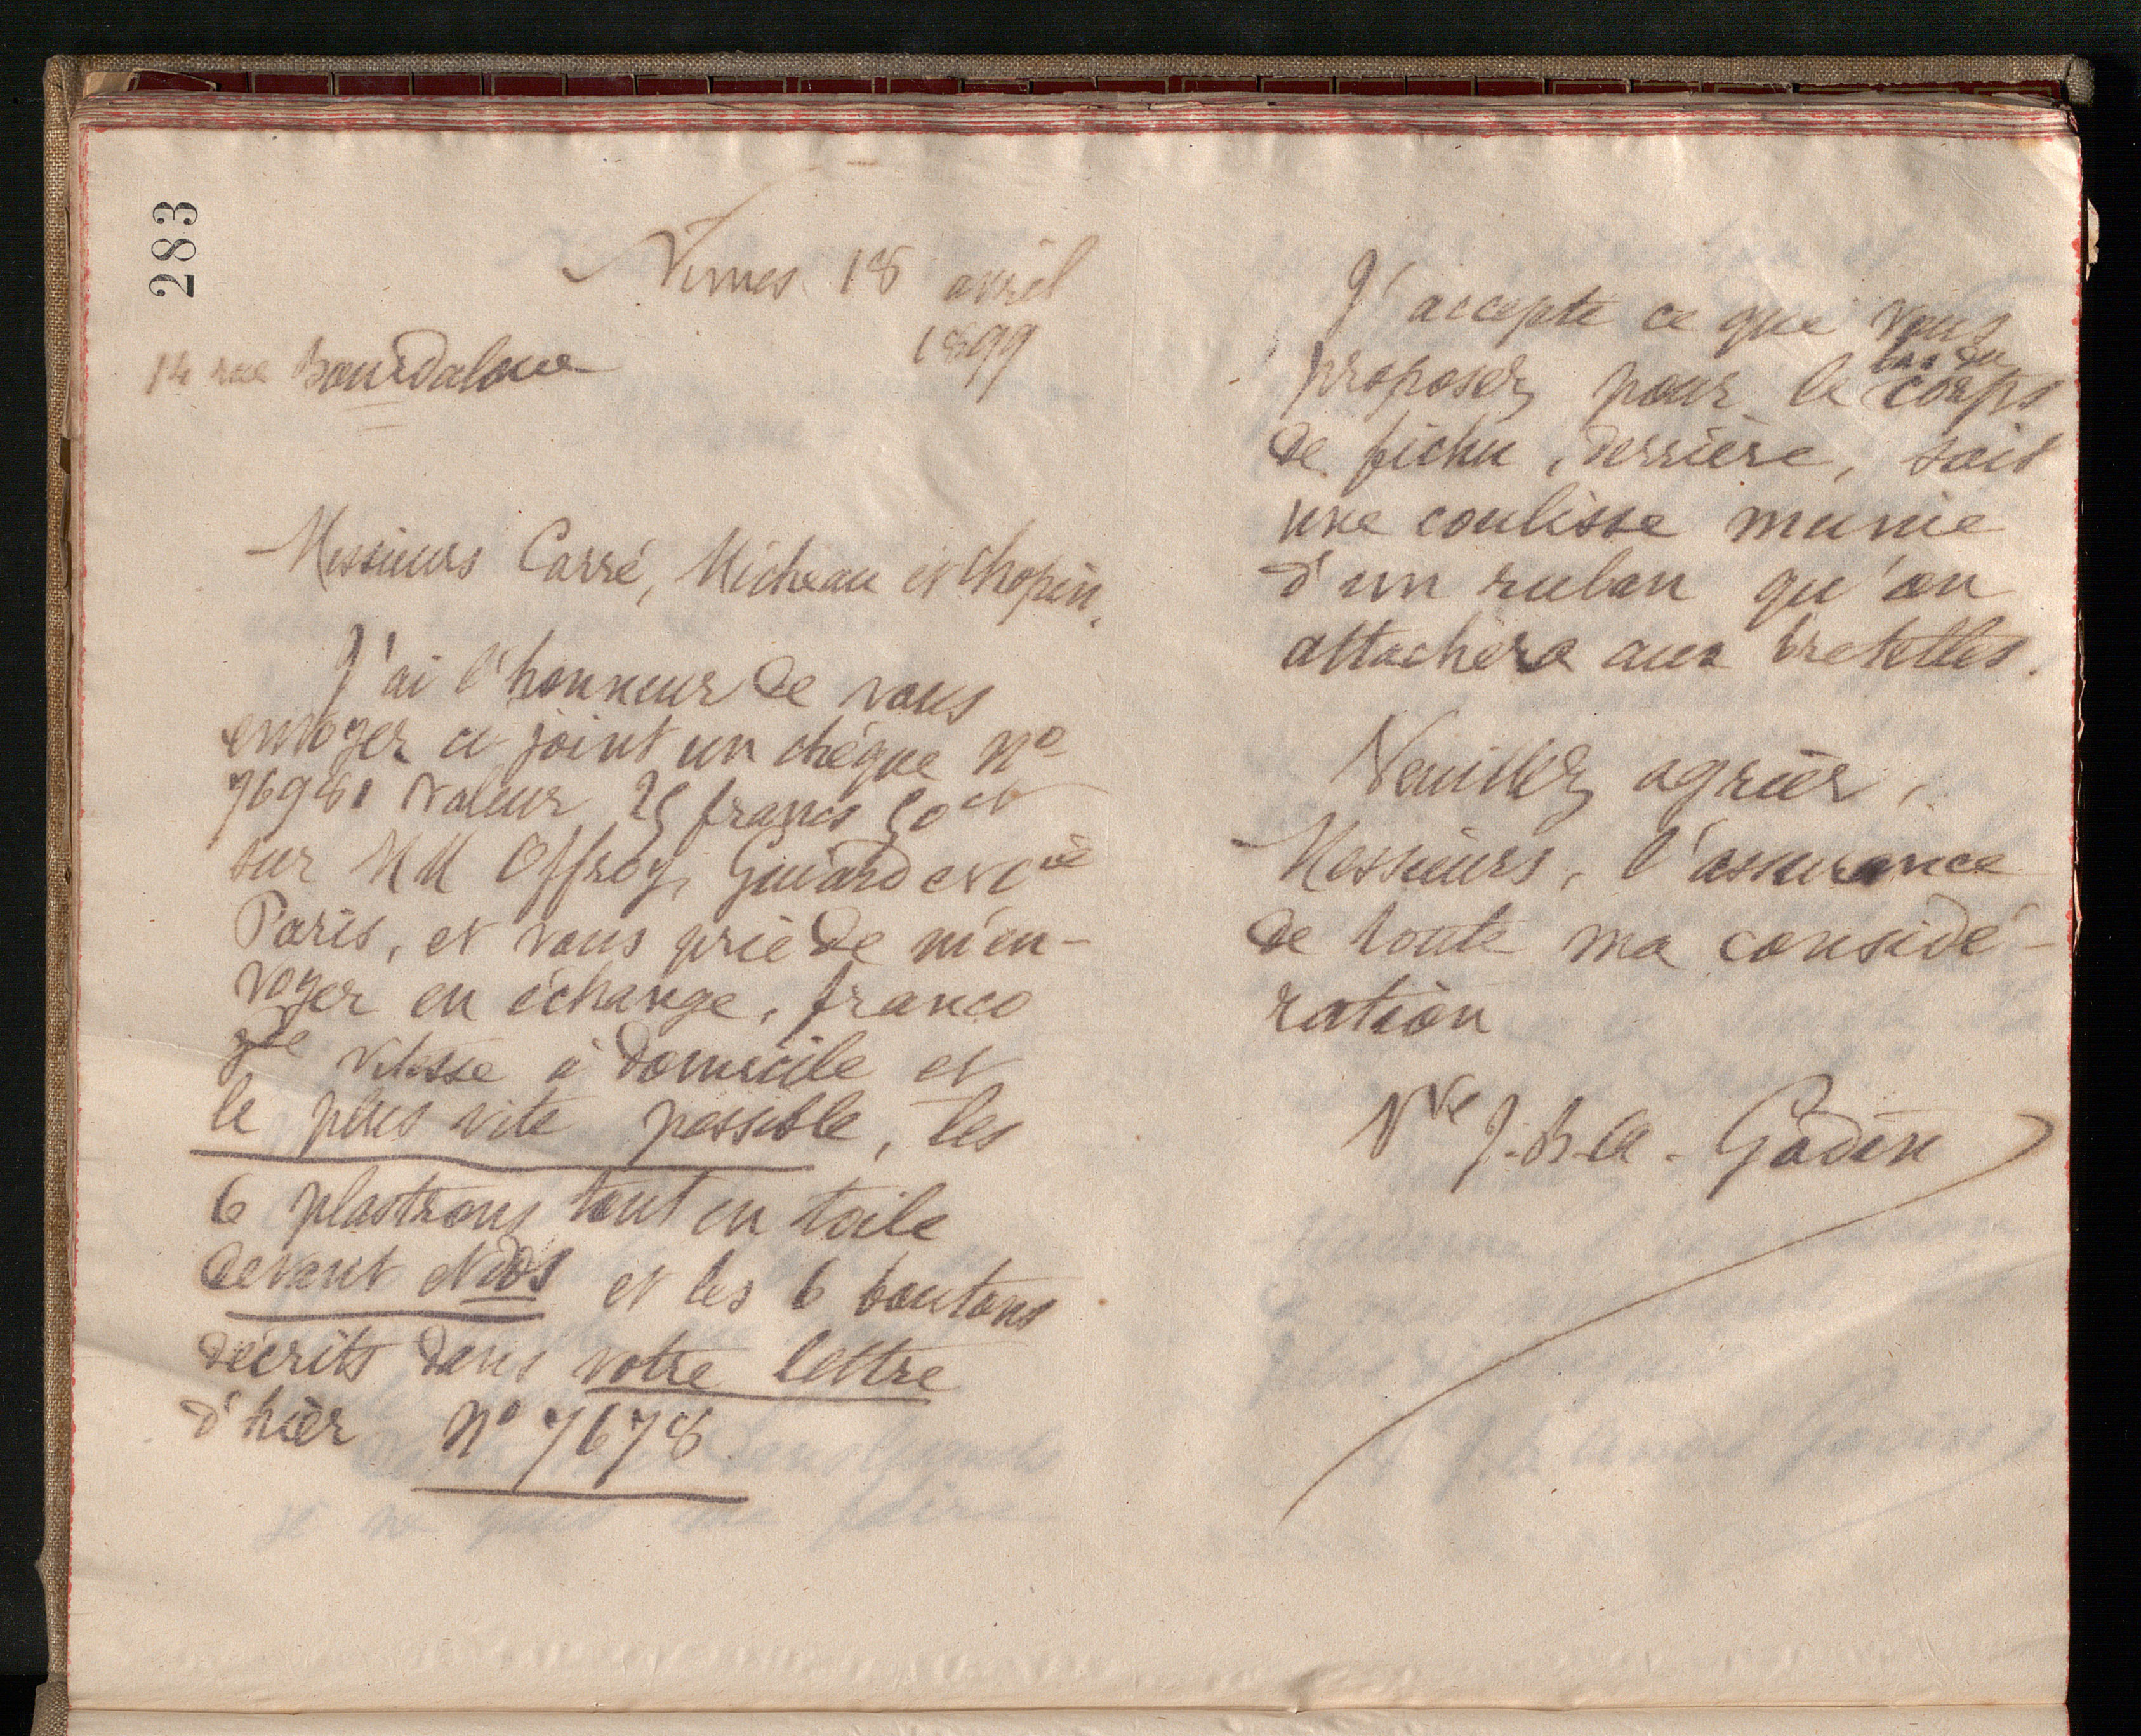 283
Nimes 18 avril
1899
14 rue Bourdaloue
Messieurs Carré, Micheau et Chopin,
J'ai l'honneur de vous
envoyer ci joint un chèque No
76981 valeur 25 francs 50 ct
sur MM Offroy, Guiard et Cie
Paris, et vous prie de m'en-
voyer en échange, franco
gde vitesse à domicile et
le plus vite possible, les
6 plastrons tout en toile
devant et dos et les 6 boutons
décrits dans votre lettre
d'hier No 7678
J'accepte ce que vous
proposez pour le bas du corps
de fichu, derrière, soit
une coulisse munie
d'un ruban qu'on
attachera aux bretelles.
Veuillez agréer,
Messieurs, l'assurance
de toute ma considé-
ration
Vve J-B-A- Godin